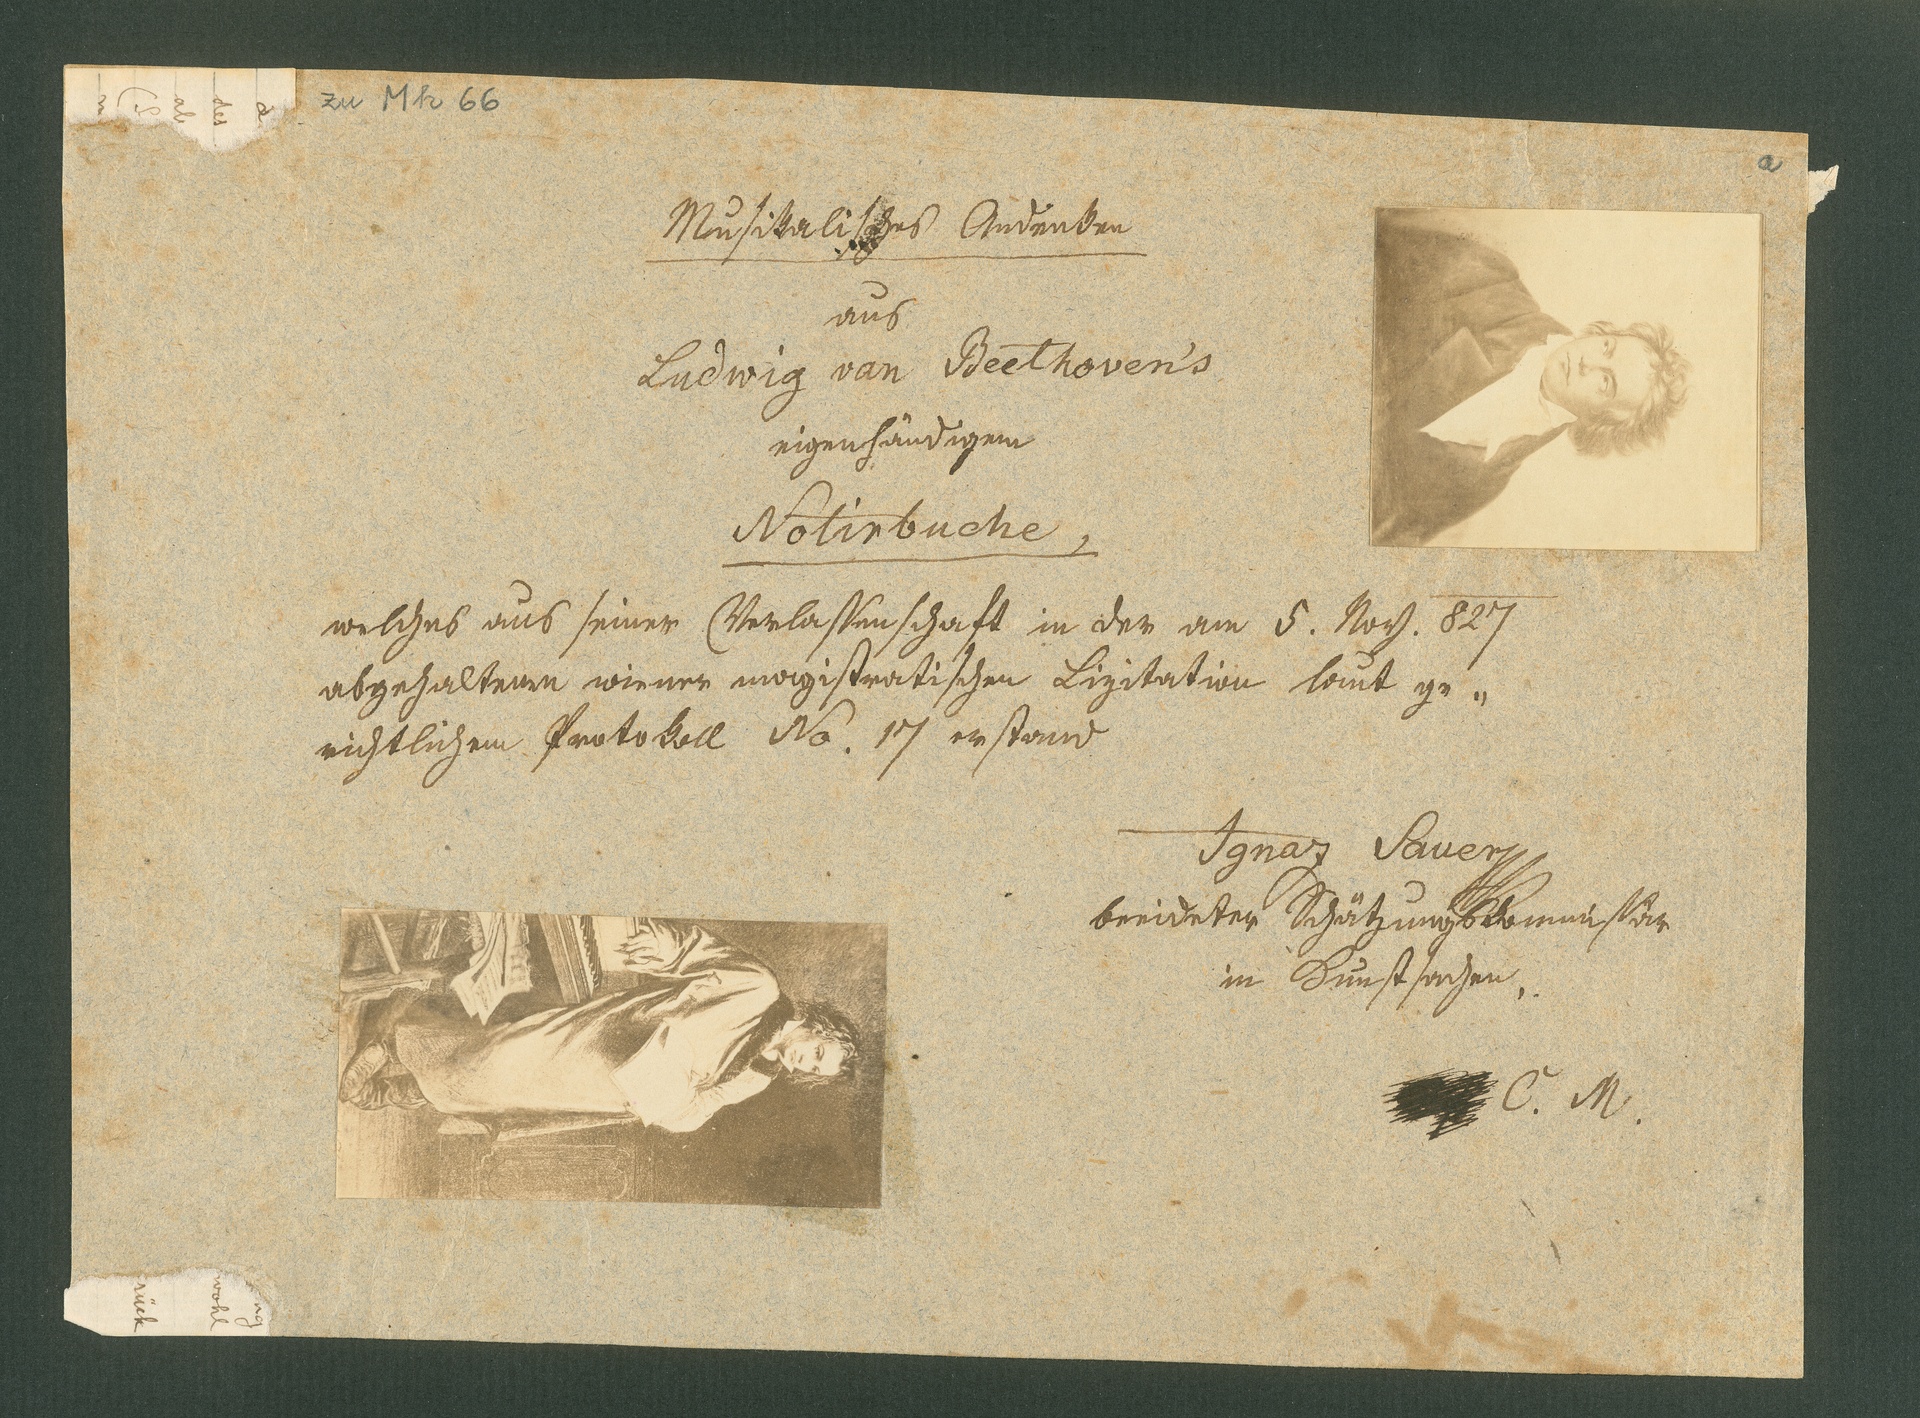 zu Mh 66
a
Musikalisches Andenken
aus
Ludwig van Beethoven's
eigenhändigem
Notirbuche,
welches aus seiner Verlassenschaft in der am 5. Nov. 827
abgehaltenen wiener magistratischen Lizitation laut ge„
richtlichem Protokoll No. 17 erstand
Ignaz Sauer
beeideter Schätzungskommissär
in Kunstsachen,.
C. M.
des
ab
ng
wohl
rück